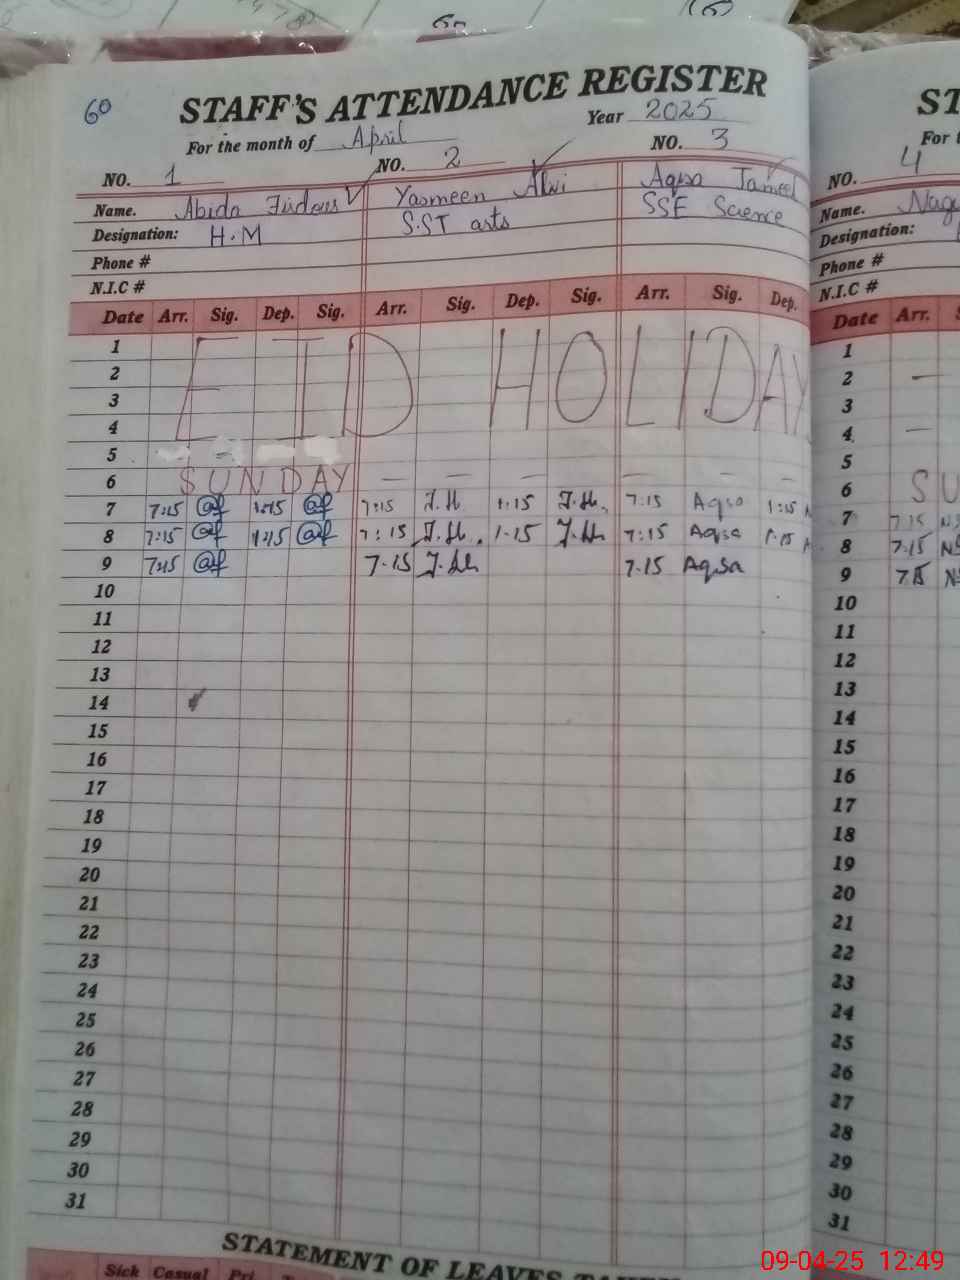 60
STAFF'S ATTENDANCE REGISTER
For the month of April Year 2025
NO. 1 NO. 2 NO. 3
Name. Abida Firdous Yasmeen Alvi Aqsa Jameel
Designation: H.M S.ST arts SSE Science
Phone #
N.I.C #
Date Arr. Sig. Dep. Sig. Arr. Sig. Dep. Sig. Arr. Sig. Dep.
1
2
3
4
EID HOLIDAY
5
6 SUNDAY – – – – – – –
7 7:15 1:15 7:15 1:15 7:15 Aqsa 1:15
8 7:15 1:15 7:15 1-15 7:15 Aqsa 1:15
9 7:15 7.15 7.15 Aqsa
10
11
12
13
14
15
16
17
18
19
20
21
22
23
24
25
26
27
28
29
30
31
STATEMENT OF LEAVES
Sick Casual Pri
ST
For t
NO. 4
Name.
Designation:
Phone #
N.I.C #
Date Arr. S
1
2 –
3
4 –
5
6 SU
7 7.15 NS
8 7.15 NS
9 7.15 NS
10
11
12
13
14
15
16
17
18
19
20
21
22
23
24
25
26
27
28
29
30
31
09-04-25 12:49